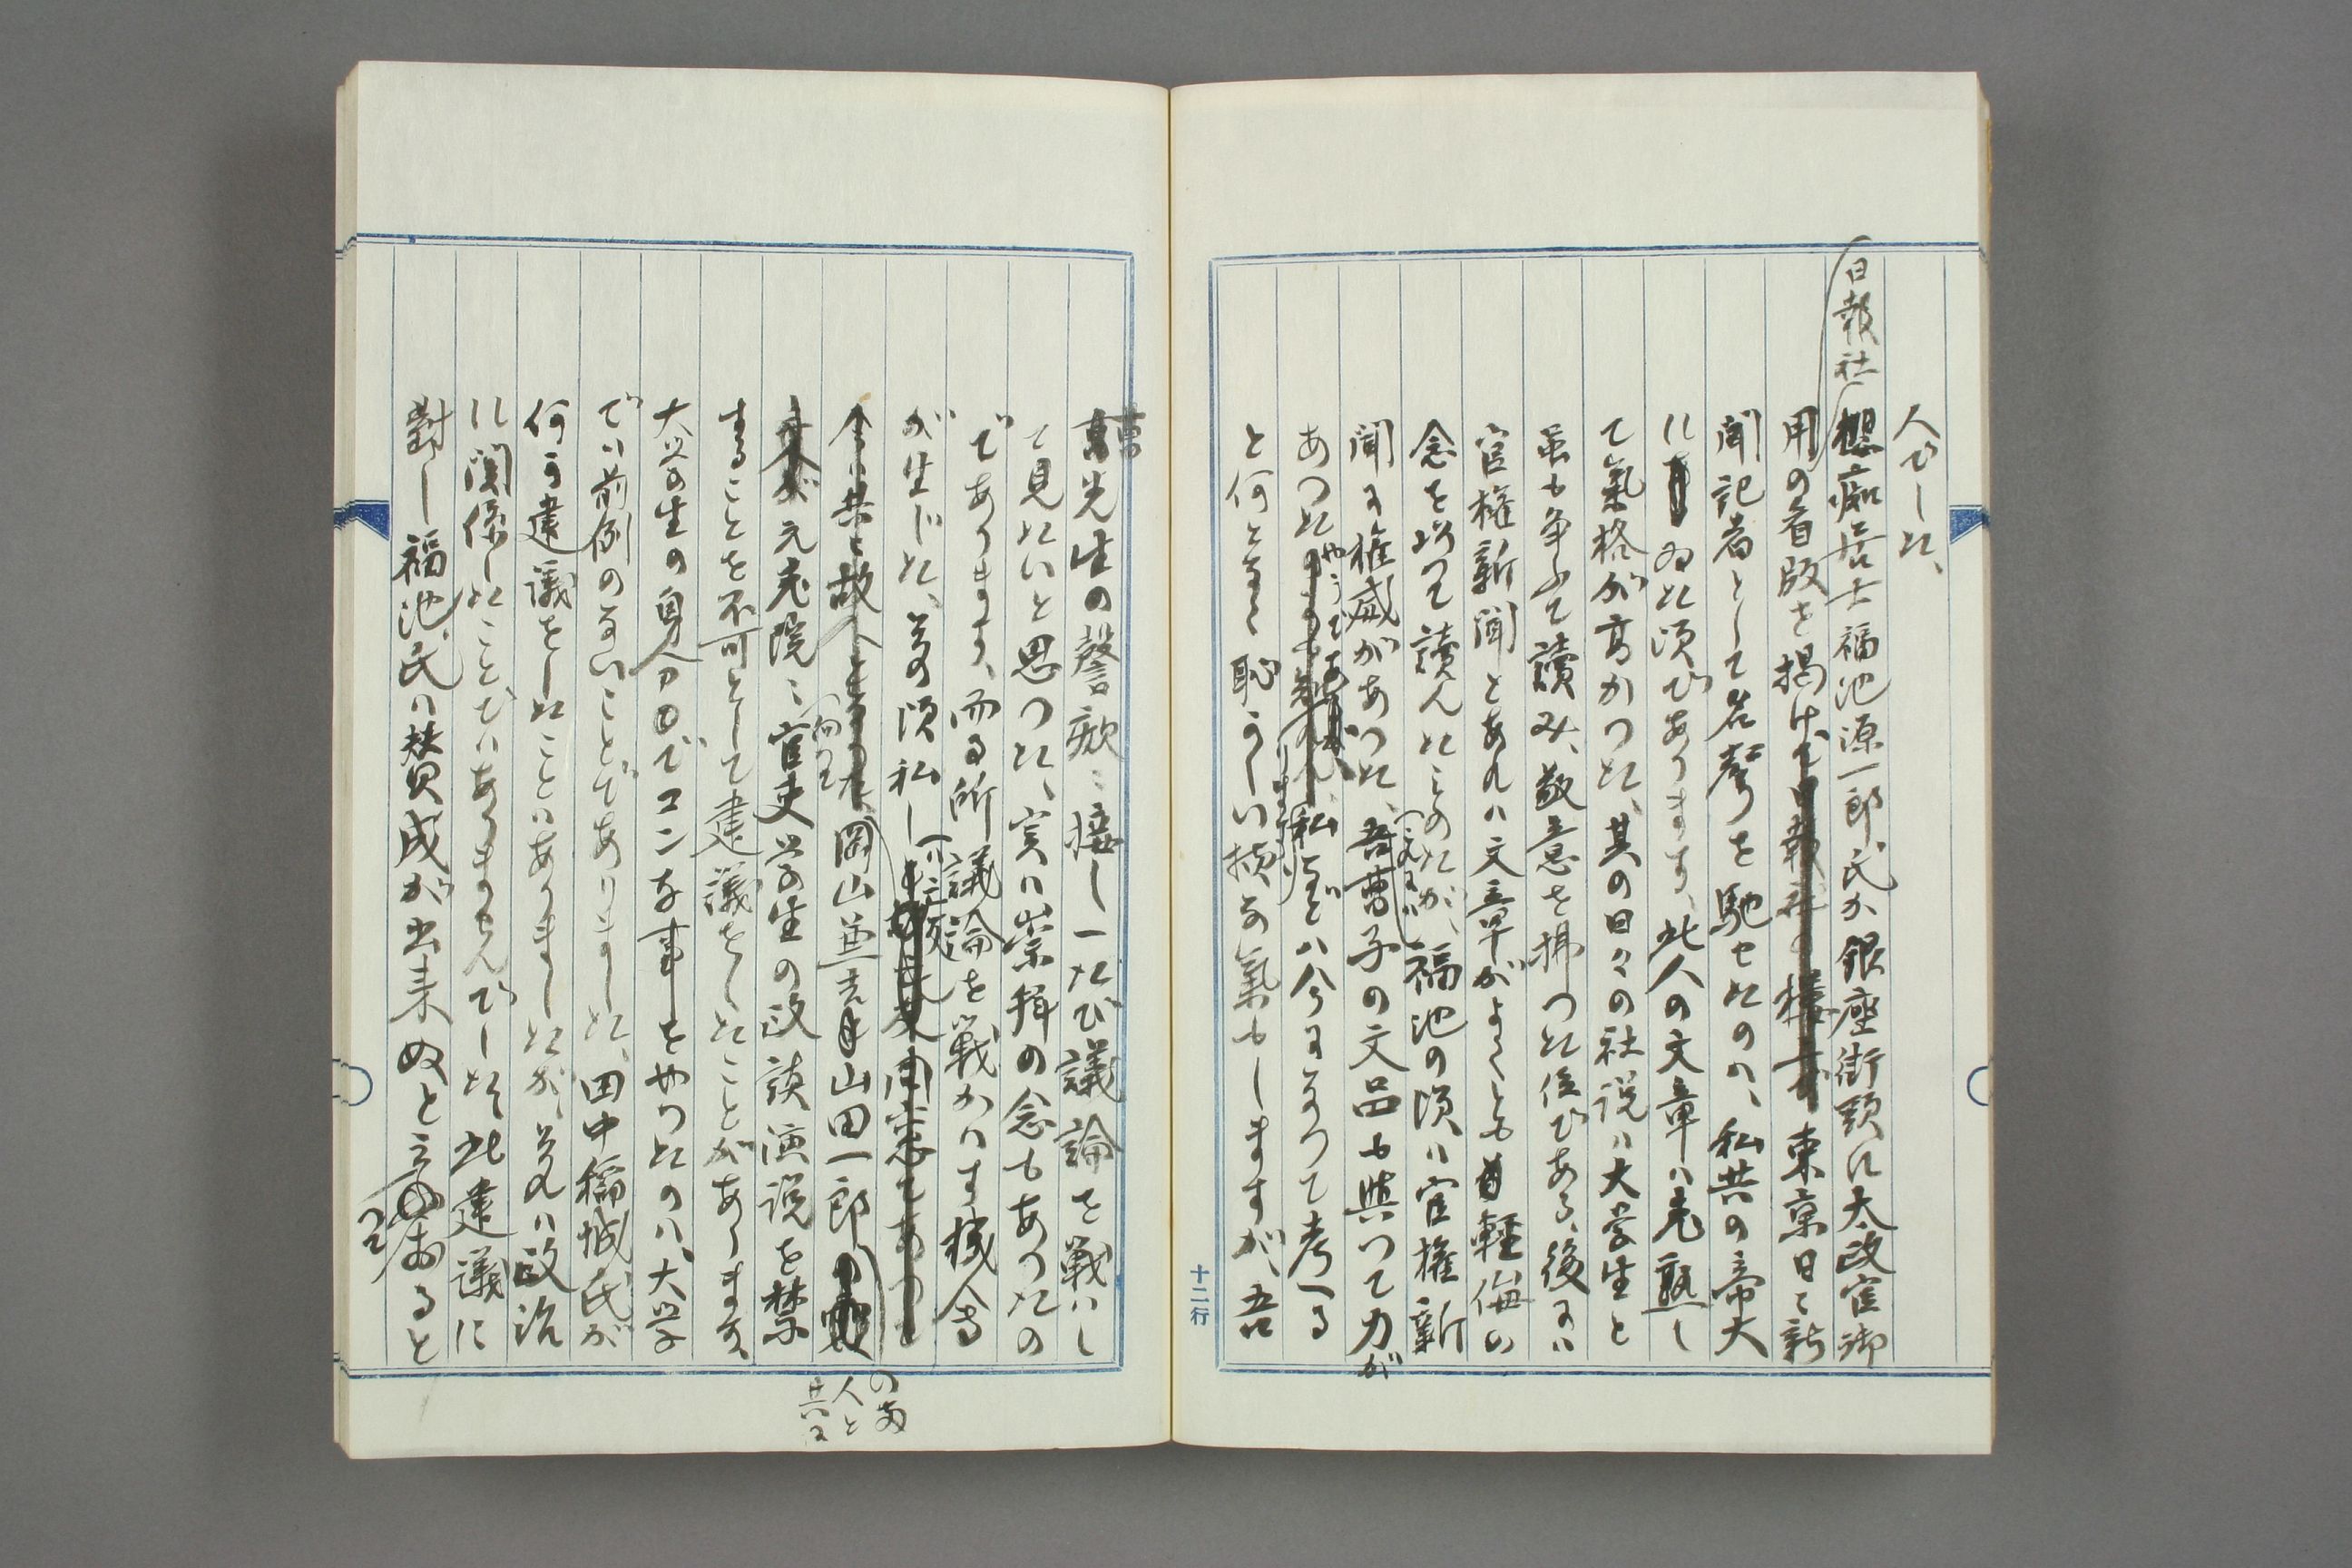 人でした、
日報社
櫻痴居士福池源一郎氏か銀座街頭に大政官御
用の看版を掲げ東京日々新
聞記者として名聲を馳せたのハ、私共の帝大
にゐた頃であります、此人の文章ハ老熟し
て氣格が高かつた、其の日々の社説ハ大学生と
虽も争ふて讀み、敬意を拂つた位である、後にハ
官権新聞とあれハ文章がよくとも軽侮の
念を以つて讀んたものたが、福池の頃ハ官権新
聞に権威があつた、吾曹子の文品も與つて力が
あつた
やうであ
りますが
私などハ今になつて考へる
と何となく恥かしい様な氣もしますが、吾
十二行
曹先生の謦欬に接し一たび議論を戦ハし
て見たいと思つた、実ハ崇拝の念もあつたの
であります、而る所議論を戦かハす機会
が生じた、其頃私し
ハ亡友
岡山兼吉山田一郎
のあ
人と
共に
元老院に官吏学生の政談演説を禁
することを不可として建議をしたことがあります、
大学生の身分でコンな事しをやつたのハ、大学
でハ前例のないことでありました、田中稲城氏が
何か建議をしたことハありましたが、其れハ政治
に関係したことでハありませんでした、此建議に
對し福池氏ハ賛成が出来ぬと云
つて
おると